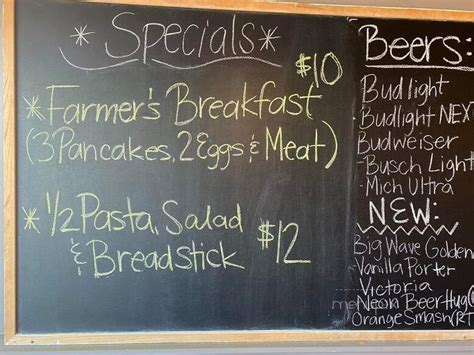 *Specials*
$10
*Farmer's Breakfast
(3 Pancakes, 2 Eggs & Meat)
* 1/2 Pasta, Salad
& Breadstick
$12
Beers:
Bud light
Budlight NEX
Budweiser
-Busch Light
-Mich Ultra
NEW:
Big Wave Golden
Vanilla Porter
Victoria
Neon Beer Hug
Orange Smash(RT